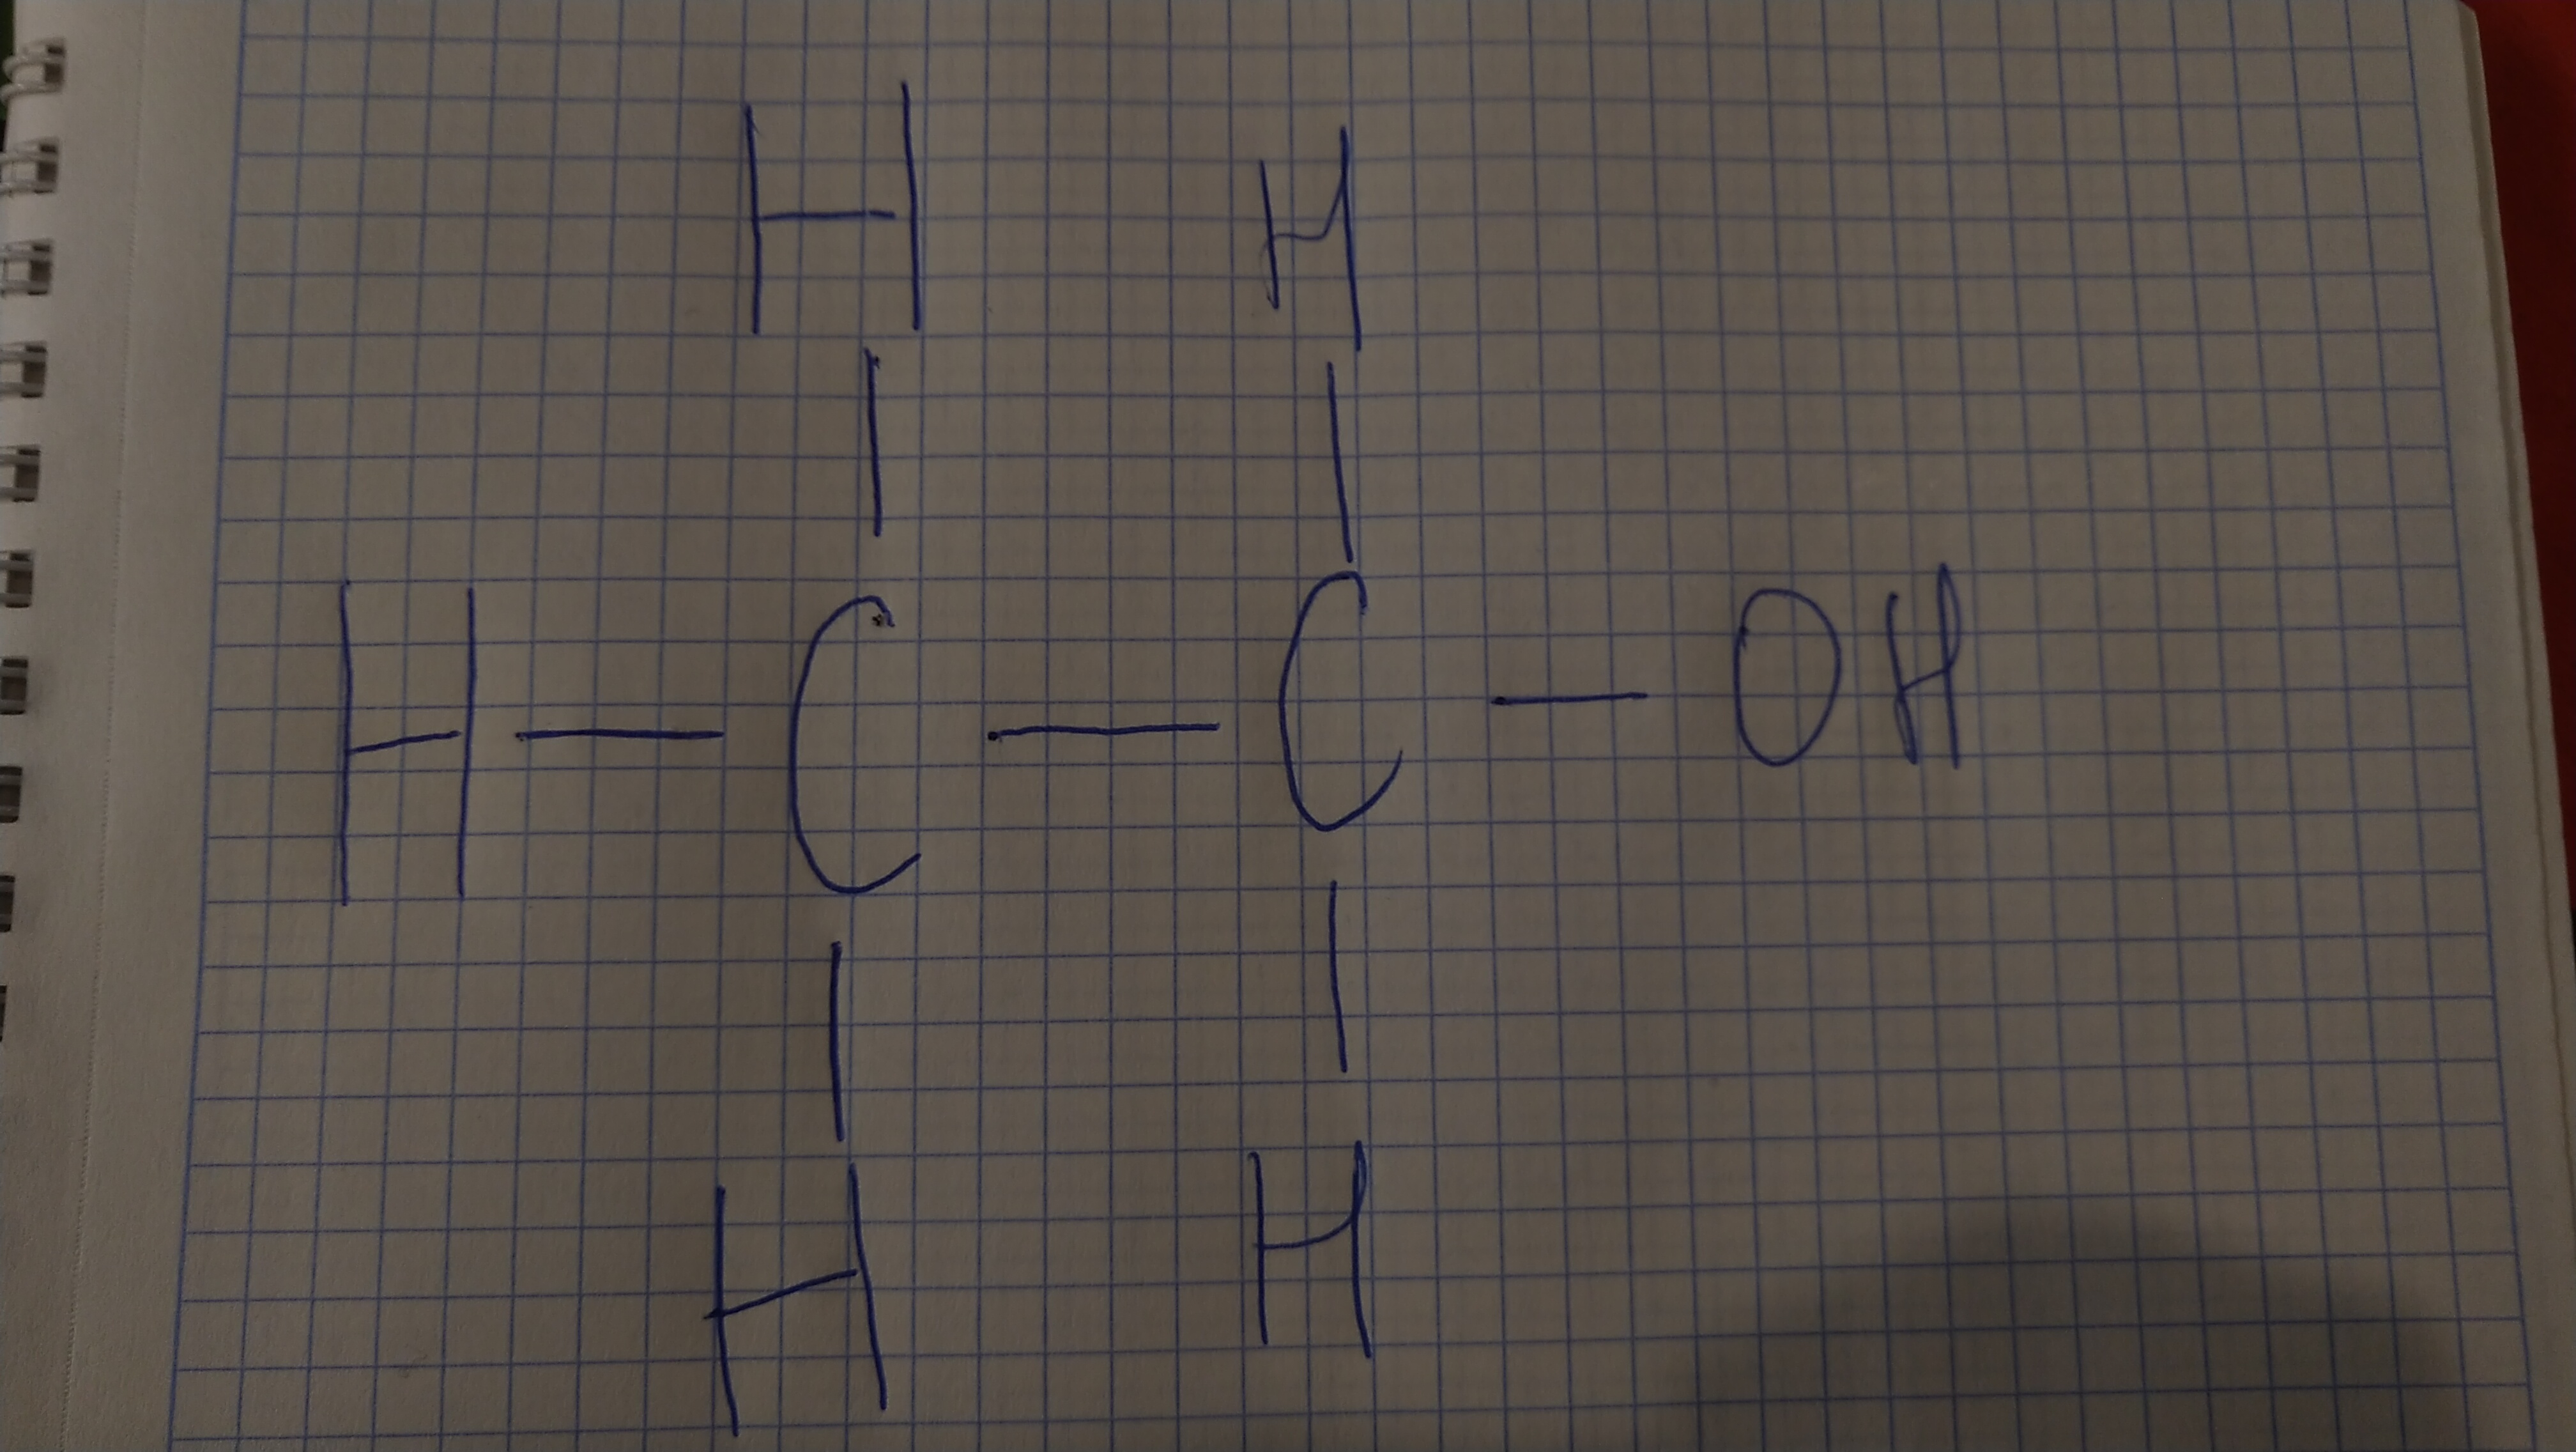 H H
H — C — C — OH
H H